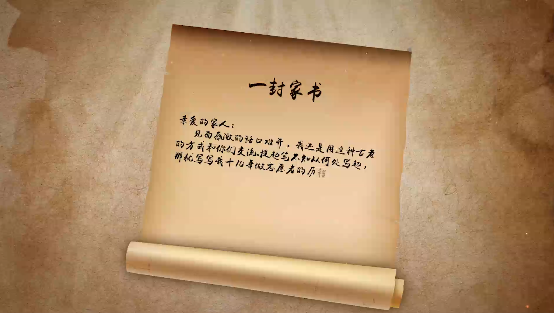 一封家书
亲爱的家人：
见面感激的话口难开，我还是用这种古老
的方式和你们交流，提起笔不知从何处写起，
那就写写我十几年做志愿者的历程